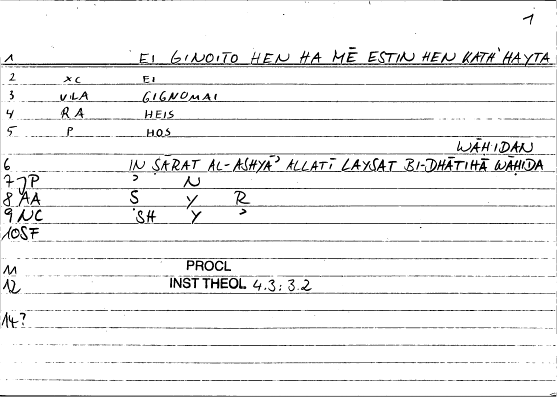 1
1 EI GINOITO HEN HA MĒ ESTIN HEN KATH'HAYTA
2 XC EI
3 VILA GIGNOMAI
4 RA HEIS
5 P HOS
WĀHIDAN
6 IN ṢĀRAT AL-ASHYĀʾ ALLATĪ LAYSAT BI-DHĀTIHĀ WĀHIDA
7 JP ʾ N
8 AA Ṣ Y R
9 NC SH Y ʾ
10 SF
11 PROCL
12 INST THEOL 4.3: 3.2
14?